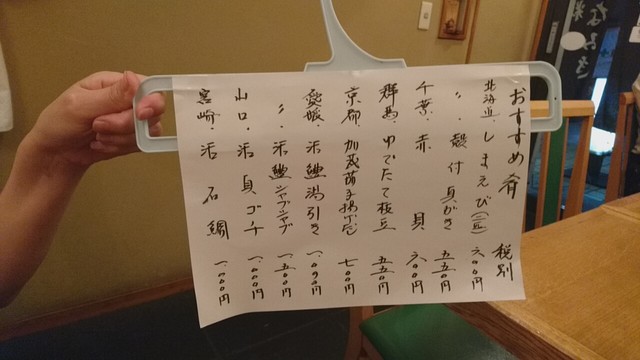 おすすめ肴 税別
北海道・しまえび(二匹) 六〇〇円
〃・殻付 真がき 五五〇円
千葉・赤貝 六〇〇円
群馬・ゆでたて枝豆 五五〇円
京都・加茂茄子揚げだし 七〇〇円
愛媛・活鱧湯引き 一、〇〇〇円
〃・活鱧シャブシャブ 一、五〇〇円
山口・活真ゴチ 一、〇〇〇円
宮崎・活石鯛 一、〇〇〇円